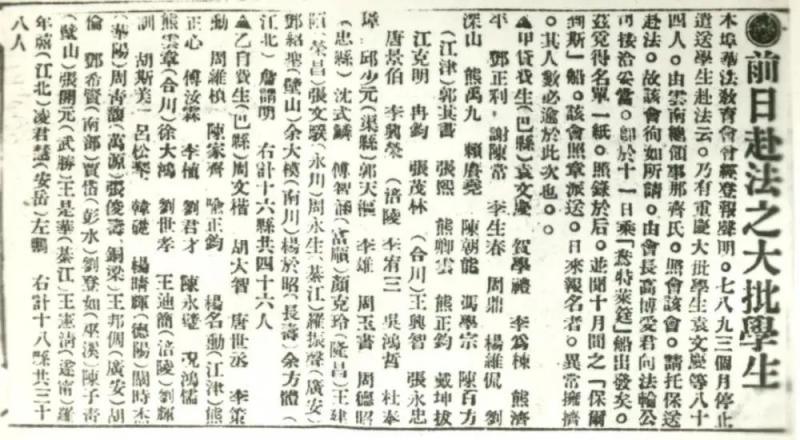 前日赴法之大批學生
本埠華法敎育會曾經登報聲明。七八九三個月停止
遣送學生赴法云。乃有重慶大批學生袁文慶等八十
四人。由雲南總領事那齊氏。照會該會。請托保送
赴法。故該會徇如所請。由會長高博愛君向法輪公
司接洽妥當。卽於十一日乘「鴦特萊蓬」船出發矣。
茲覓得名單一紙。照錄於后。並聞十月間之「保爾
到斯」船。該會照章派送。日來報名者。異常擁擠
。其人數必逾於此次也。。
▲甲貸費生(巴縣)袁文慶 賀學禮 李爲棟 熊濟
平 鄭正利 謝陳常 李生春 周鼎 楊維侃 劉
深山 熊禹九 賴賡堯 陳朝能 馮學宗 陳百方
(江津)郭其書 張熙 熊卿雲 熊正鈞 戴坤拔
江克明 冉鈞 張茂林 (合川)王興智 張永忠
唐景伯 李興榮 (涪陵)李宥三 吳鴻哲 杜奉
璋 邱少元(渠縣)郭天 李雄 周玉書 周德昭
(忠縣)沈式麟 傅智涵(富順)顏克玲(隆昌)王建
陌(榮昌)張文駿(永川)周永生(綦江)羅振聲(廣安)
鄧紹聖(璧山)余大模(南川)楊於昭(長壽)余方體(
江北)詹謂明 右計十六縣共四十六人
▲乙自費生(巴縣)周文楷 胡大智 唐世丞 李策
勳 周維楨 陳家齊 喩正鈞 楊名動(江津)熊
正心 傅汝霖 李植 劉君才 陳永璧 況鴻儒
熊雲章(合川)徐大鴻 劉世孝 王迪簡(涪陵)劉輝
訓 胡斯美 呂松琴 韓礎 楊晴輝(德陽)闕時杰
(華陽)周靑馥(萬源)張俊壽(銅梁)王邦倜(廣安)胡
倫 鄧希賢(南部)賈岱(彭水)劉登如(巫溪)陳子靑
張開元(武勝)王是華(綦江)王憲淸(遂甯)羅
年蓀(江北)凌君慧(安岳)左鵬 右計十八縣共三十
八人